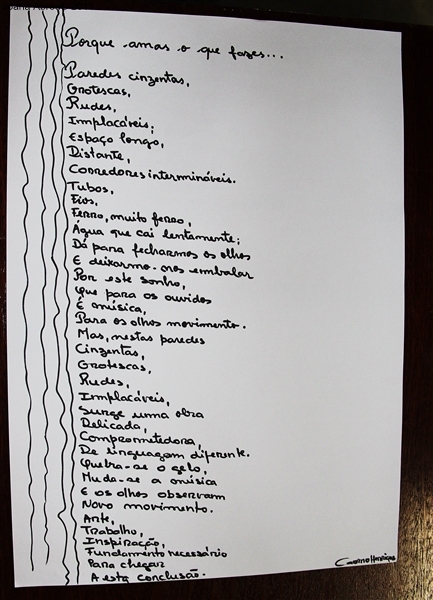 Porque amas o que fazes...
Paredes cinzentas,
Grotescas,
Rudes,
Implacáveis;
Espaço longo,
Distante,
Corredores intermináveis.
Tubos,
Fios,
Ferro, muito ferro,
Água que cai lentamente;
Dá para fecharmos os olhos
E deixarmo-nos embalar
Por este sonho,
Que para os ouvidos
É música,
Para os olhos movimento.
Mas, nestas paredes
Cinzentas,
Grotescas,
Rudes,
Implacáveis,
Surge uma obra
Delicada,
Comprometedora,
De linguagem diferente.
Quebra-se o gelo,
Muda-se a música
E os olhos observam
Novo movimento.
Arte,
Trabalho,
Inspiração,
Fundamento necessário
Para chegar
A esta conclusão.